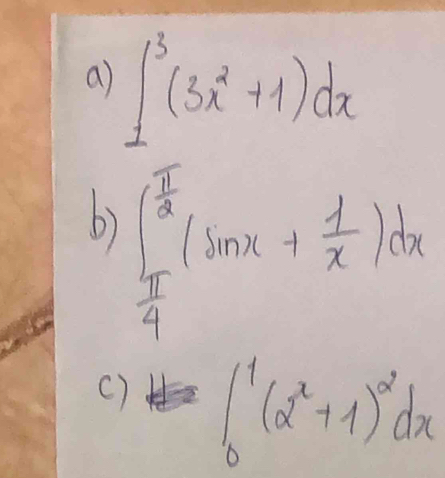 a) ∫₁³ (3x² + 1) dx
b) ∫_{π/4}^{π/2} (sinx + 1/x) dx
c) ∫₀¹ (2ˣ + 1)² dx